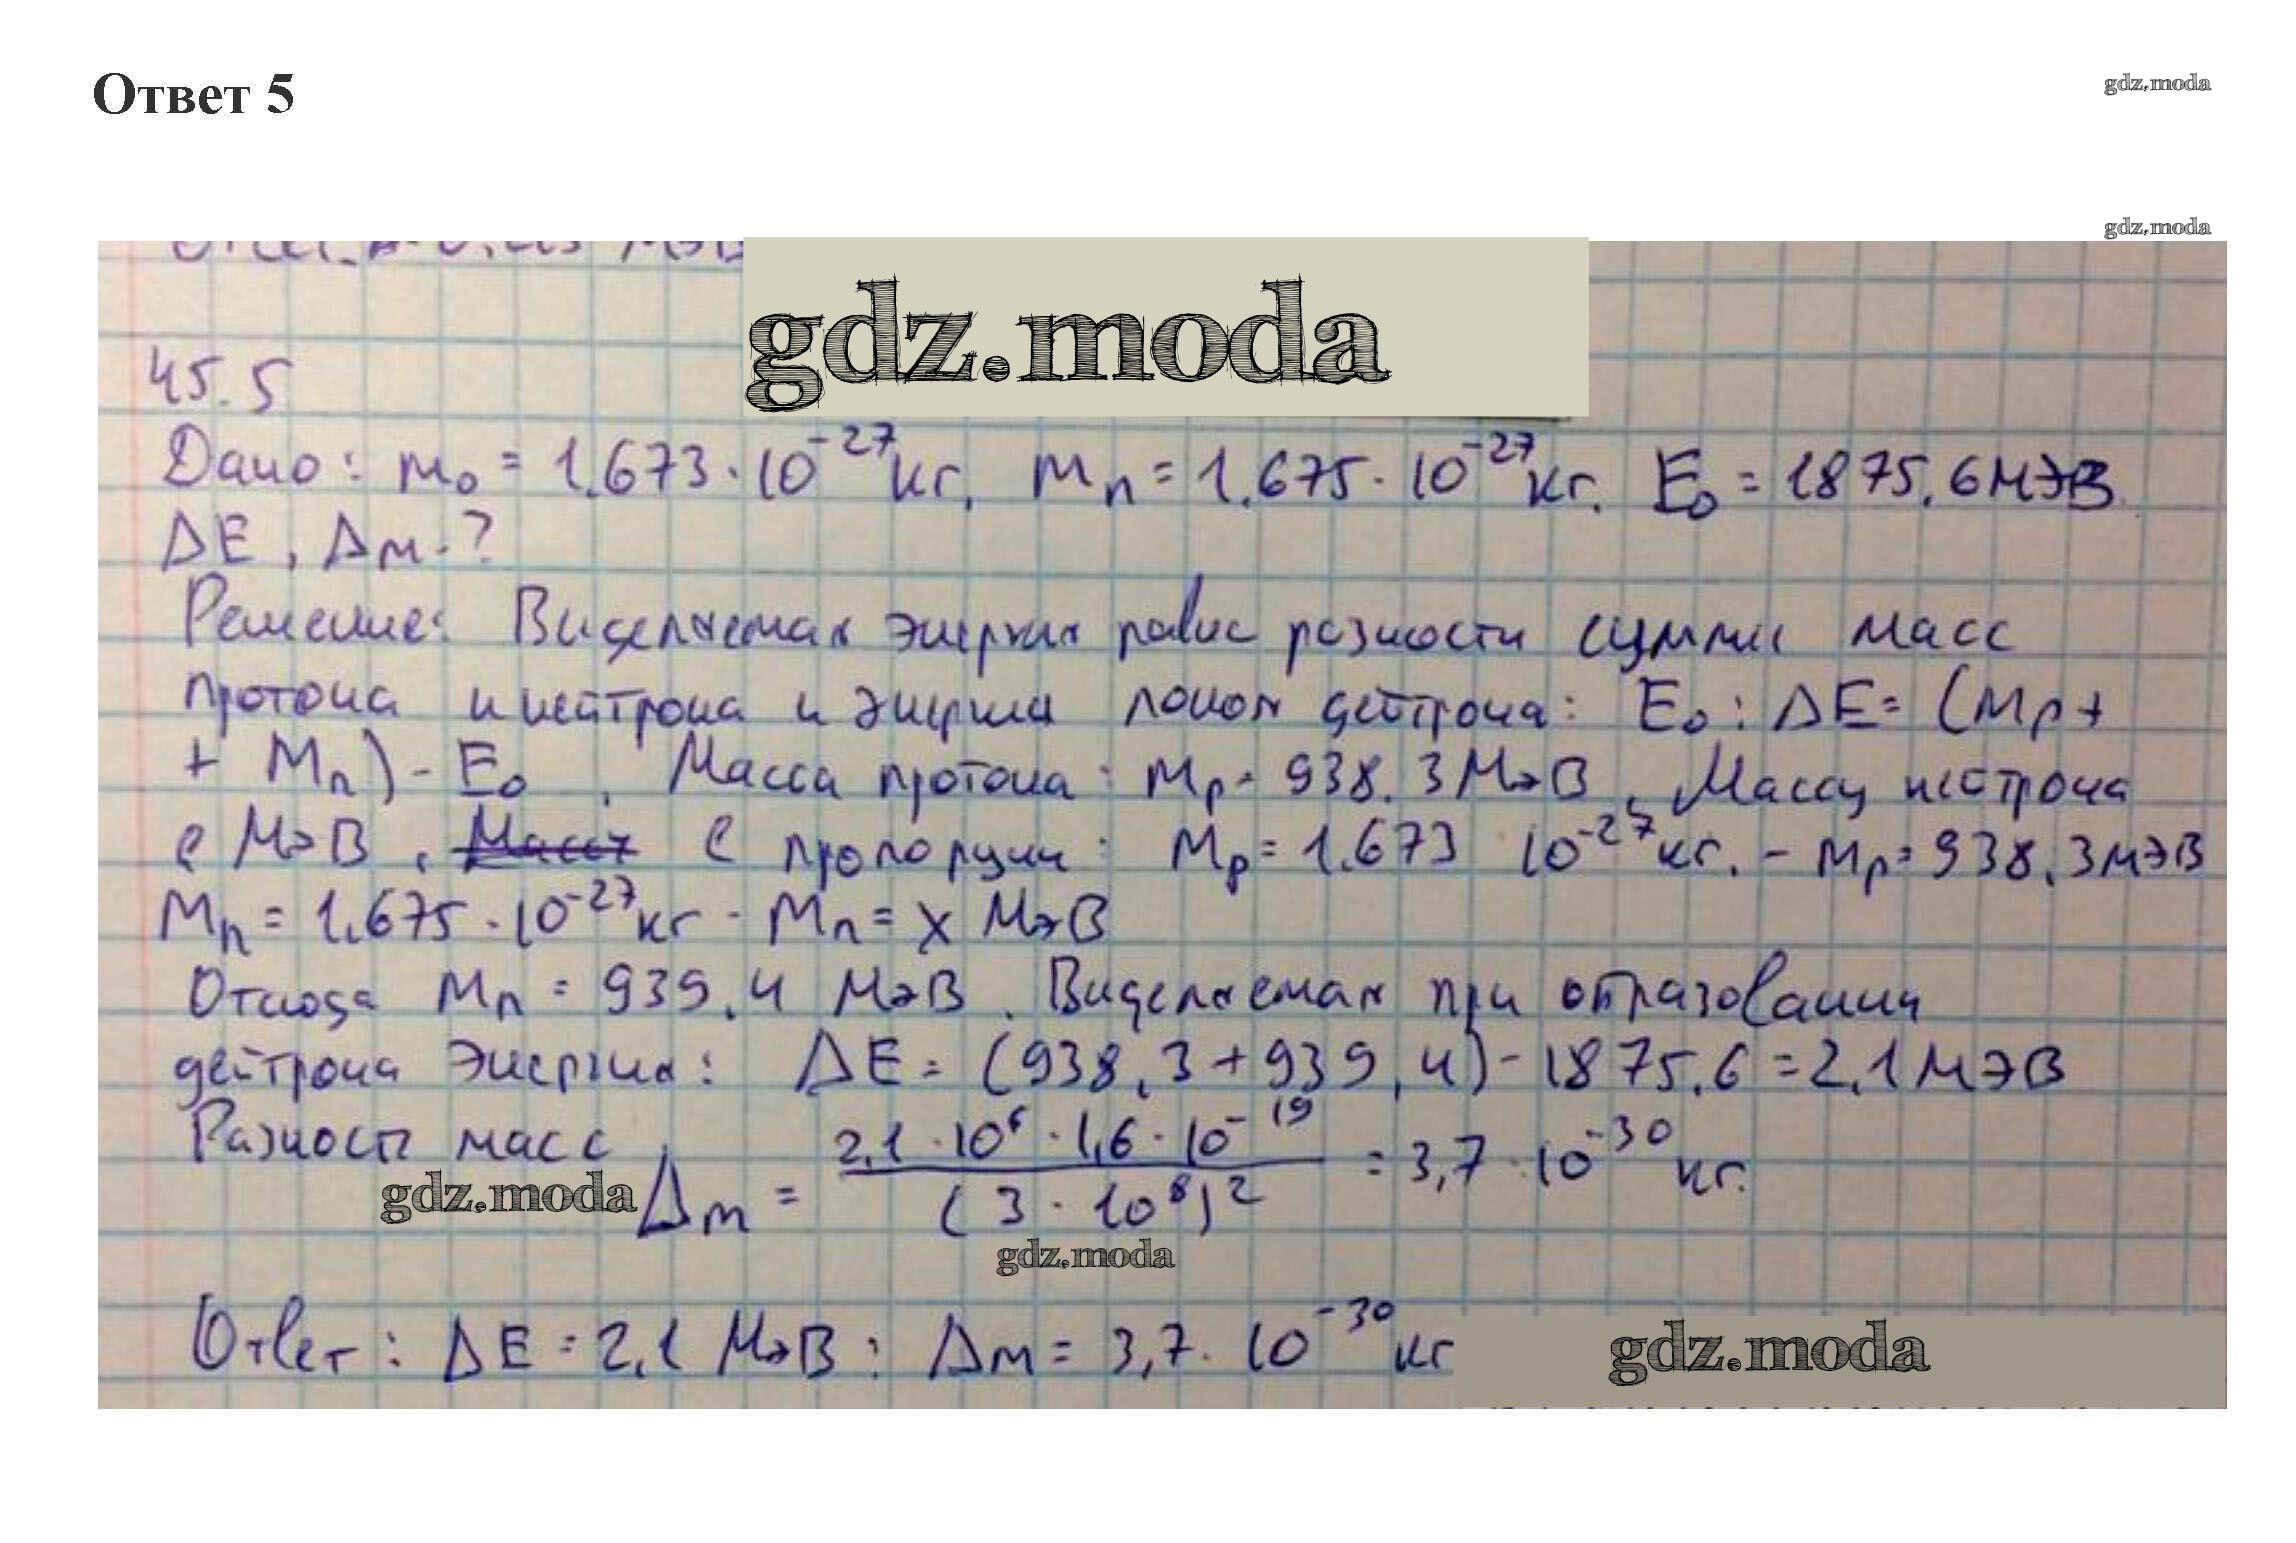 Ответ 5
gdz.moda
gdz.moda
МэВ
gdz.moda
45.5
Дано: m₀ = 1.673·10⁻²⁷кг, mₙ = 1.675·10⁻²⁷кг. E₀ = 1875.6 МэВ
ΔE, Δm-?
Решение: Виделяемая энергия равна разности сумми масс
протона и нейтрона и энергии покоя дейтрона: E₀: ΔE = (Mp +
+ Mₙ) - E₀. Масса протона: Mp = 938.3 МэВ. Массу нейтрона
в МэВ, С пропорции: Mp = 1.673 10⁻²⁷кг. – Mp = 938.3 МэВ
Mₙ = 1.675·10⁻²⁷кг - Mₙ = x МэВ
Отсюда Mₙ = 939.4 МэВ. Виделяемая при образовании
дейтрона энергия: ΔE = (938.3 + 939,4) - 1875.6 = 2.1 МэВ
Разность масс Δm = 2.1·10⁶·1,6·10⁻¹⁹ / (3·10⁸)² = 3,7·10⁻³⁰ кг.
gdz.moda
gdz.moda
Ответ: ΔE = 2,1 МэВ: Δm = 3,7·10⁻³⁰ кг
gdz.moda